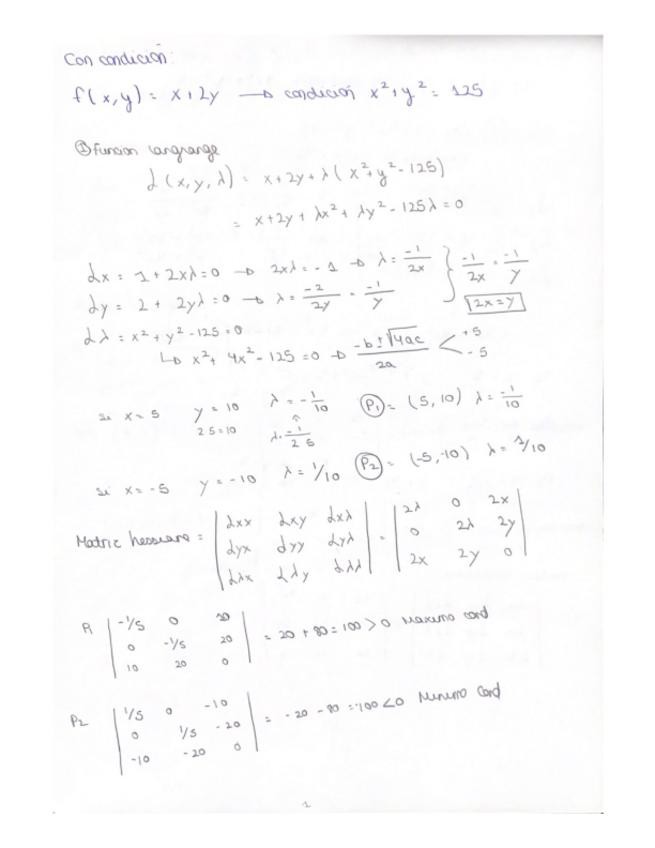 Con condición:
f(x,y) = x+2y → condición x²+y² = 125
① Funcion langrange
L(x,y,λ) = x+2y+λ(x²+y²-125)
= x+2y+λx²+λy²-125λ=0
Lx = 1+2xλ=0 → 2xλ=-1 → λ = -1/2x } -1/2x = -1/y
Ly = 2+2yλ=0 → λ = -2/2y = -1/y 2x=y
Lλ = x²+y²-125=0
↳ x²+4x²-125=0 → -b±√4ac/2a < +5 -5
si x=5 y=10 λ=-1/10 P₁ = (5,10) λ=-1/10
2·5=10 λ=-1/2·5
si x=-5 y=-10 λ=1/10 P₂ = (-5,-10) λ=1/10
Matric hessiana = | Lxx Lxy Lxλ | = | 2λ 0 2x |
| Lyx Lyy Lyλ | | 0 2λ 2y |
| Lλx Lλy Lλλ | | 2x 2y 0 |
P₁ | -1/5 0 20 |
| 0 -1/5 20 | = 20+80=100>0 Maximo cond
| 10 20 0 |
P₂ | 1/5 0 -10 |
| 0 1/5 -20 | = -20-80=-100<0 Minimo Cond
| -10 -20 0 |
1